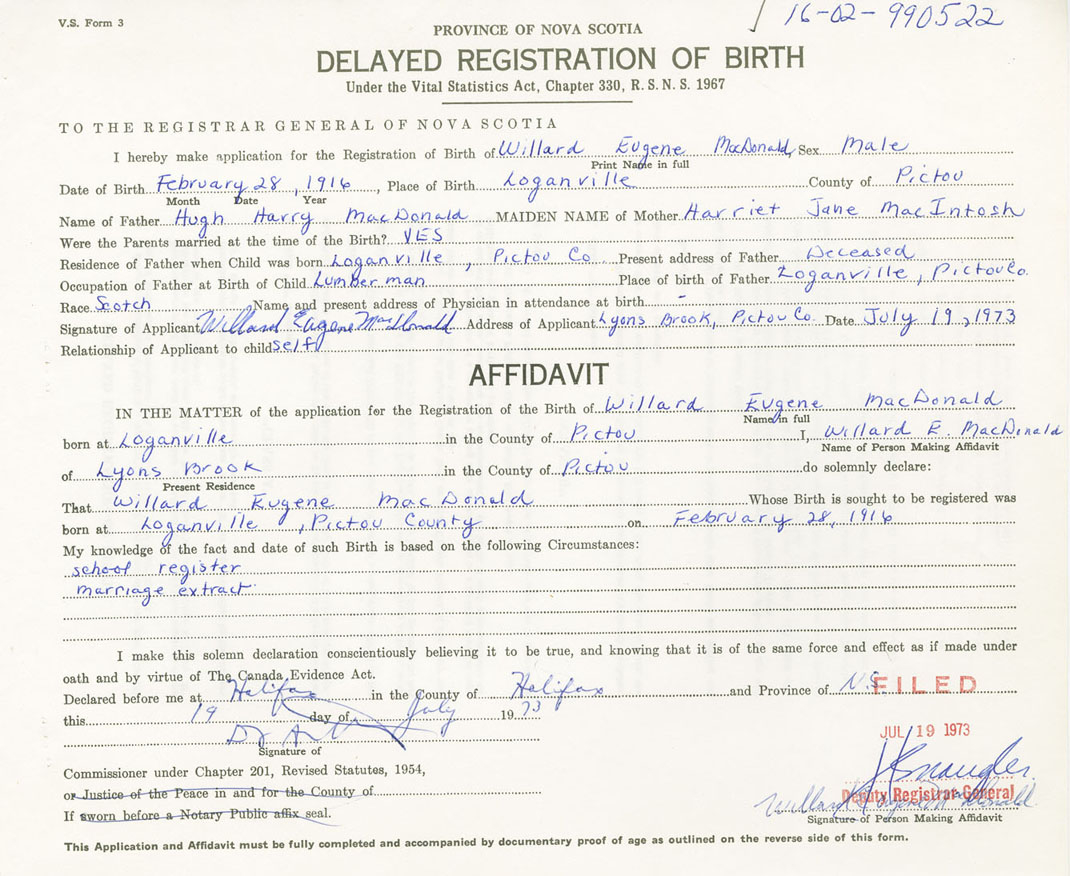 V.S. Form 3
16-02-990522
PROVINCE OF NOVA SCOTIA
DELAYED REGISTRATION OF BIRTH
Under the Vital Statistics Act, Chapter 330, R. S. N. S. 1967
TO THE REGISTRAR GENERAL OF NOVA SCOTIA
I hereby make application for the Registration of Birth of Willard Eugene MacDonald, Sex Male
Print Name in full
Date of Birth February 28, 1916, Place of Birth Loganville County of Pictou
Month Date Year
Name of Father Hugh Harry MacDonald MAIDEN NAME of Mother Harriet Jane MacIntosh
Were the Parents married at the time of the Birth? YES
Residence of Father when Child was born Loganville, Pictou Co Present address of Father Deceased
Occupation of Father at Birth of Child Lumberman Place of birth of Father Loganville, Pictou Co.
Race Scotch Name and present address of Physician in attendance at birth -
Signature of Applicant Willard Eugene MacDonald Address of Applicant Lyons Brook, Pictou Co. Date July 19, 1973
Relationship of Applicant to child self
AFFIDAVIT
IN THE MATTER of the application for the Registration of the Birth of Willard Eugene MacDonald
Name in full
born at Loganville in the County of Pictou I, Willard E. MacDonald
Name of Person Making Affidavit
of Lyons Brook in the County of Pictou do solemnly declare:
Present Residence
That Willard Eugene MacDonald Whose Birth is sought to be registered was
born at Loganville, Pictou County on February 28, 1916
My knowledge of the fact and date of such Birth is based on the following Circumstances:
school register
marriage extract
I make this solemn declaration conscientiously believing it to be true, and knowing that it is of the same force and effect as if made under
oath and by virtue of The Canada Evidence Act.
Declared before me at Halifax in the County of Halifax and Province of N.S.
FILED
this 19 day of July 1973
JUL 19 1973
Signature of
Commissioner under Chapter 201, Revised Statutes, 1954,
or Justice of the Peace in and for the County of
Deputy Registrar General
Willard Eugene MacDonald
If sworn before a Notary Public affix seal.
Signature of Person Making Affidavit
This Application and Affidavit must be fully completed and accompanied by documentary proof of age as outlined on the reverse side of this form.